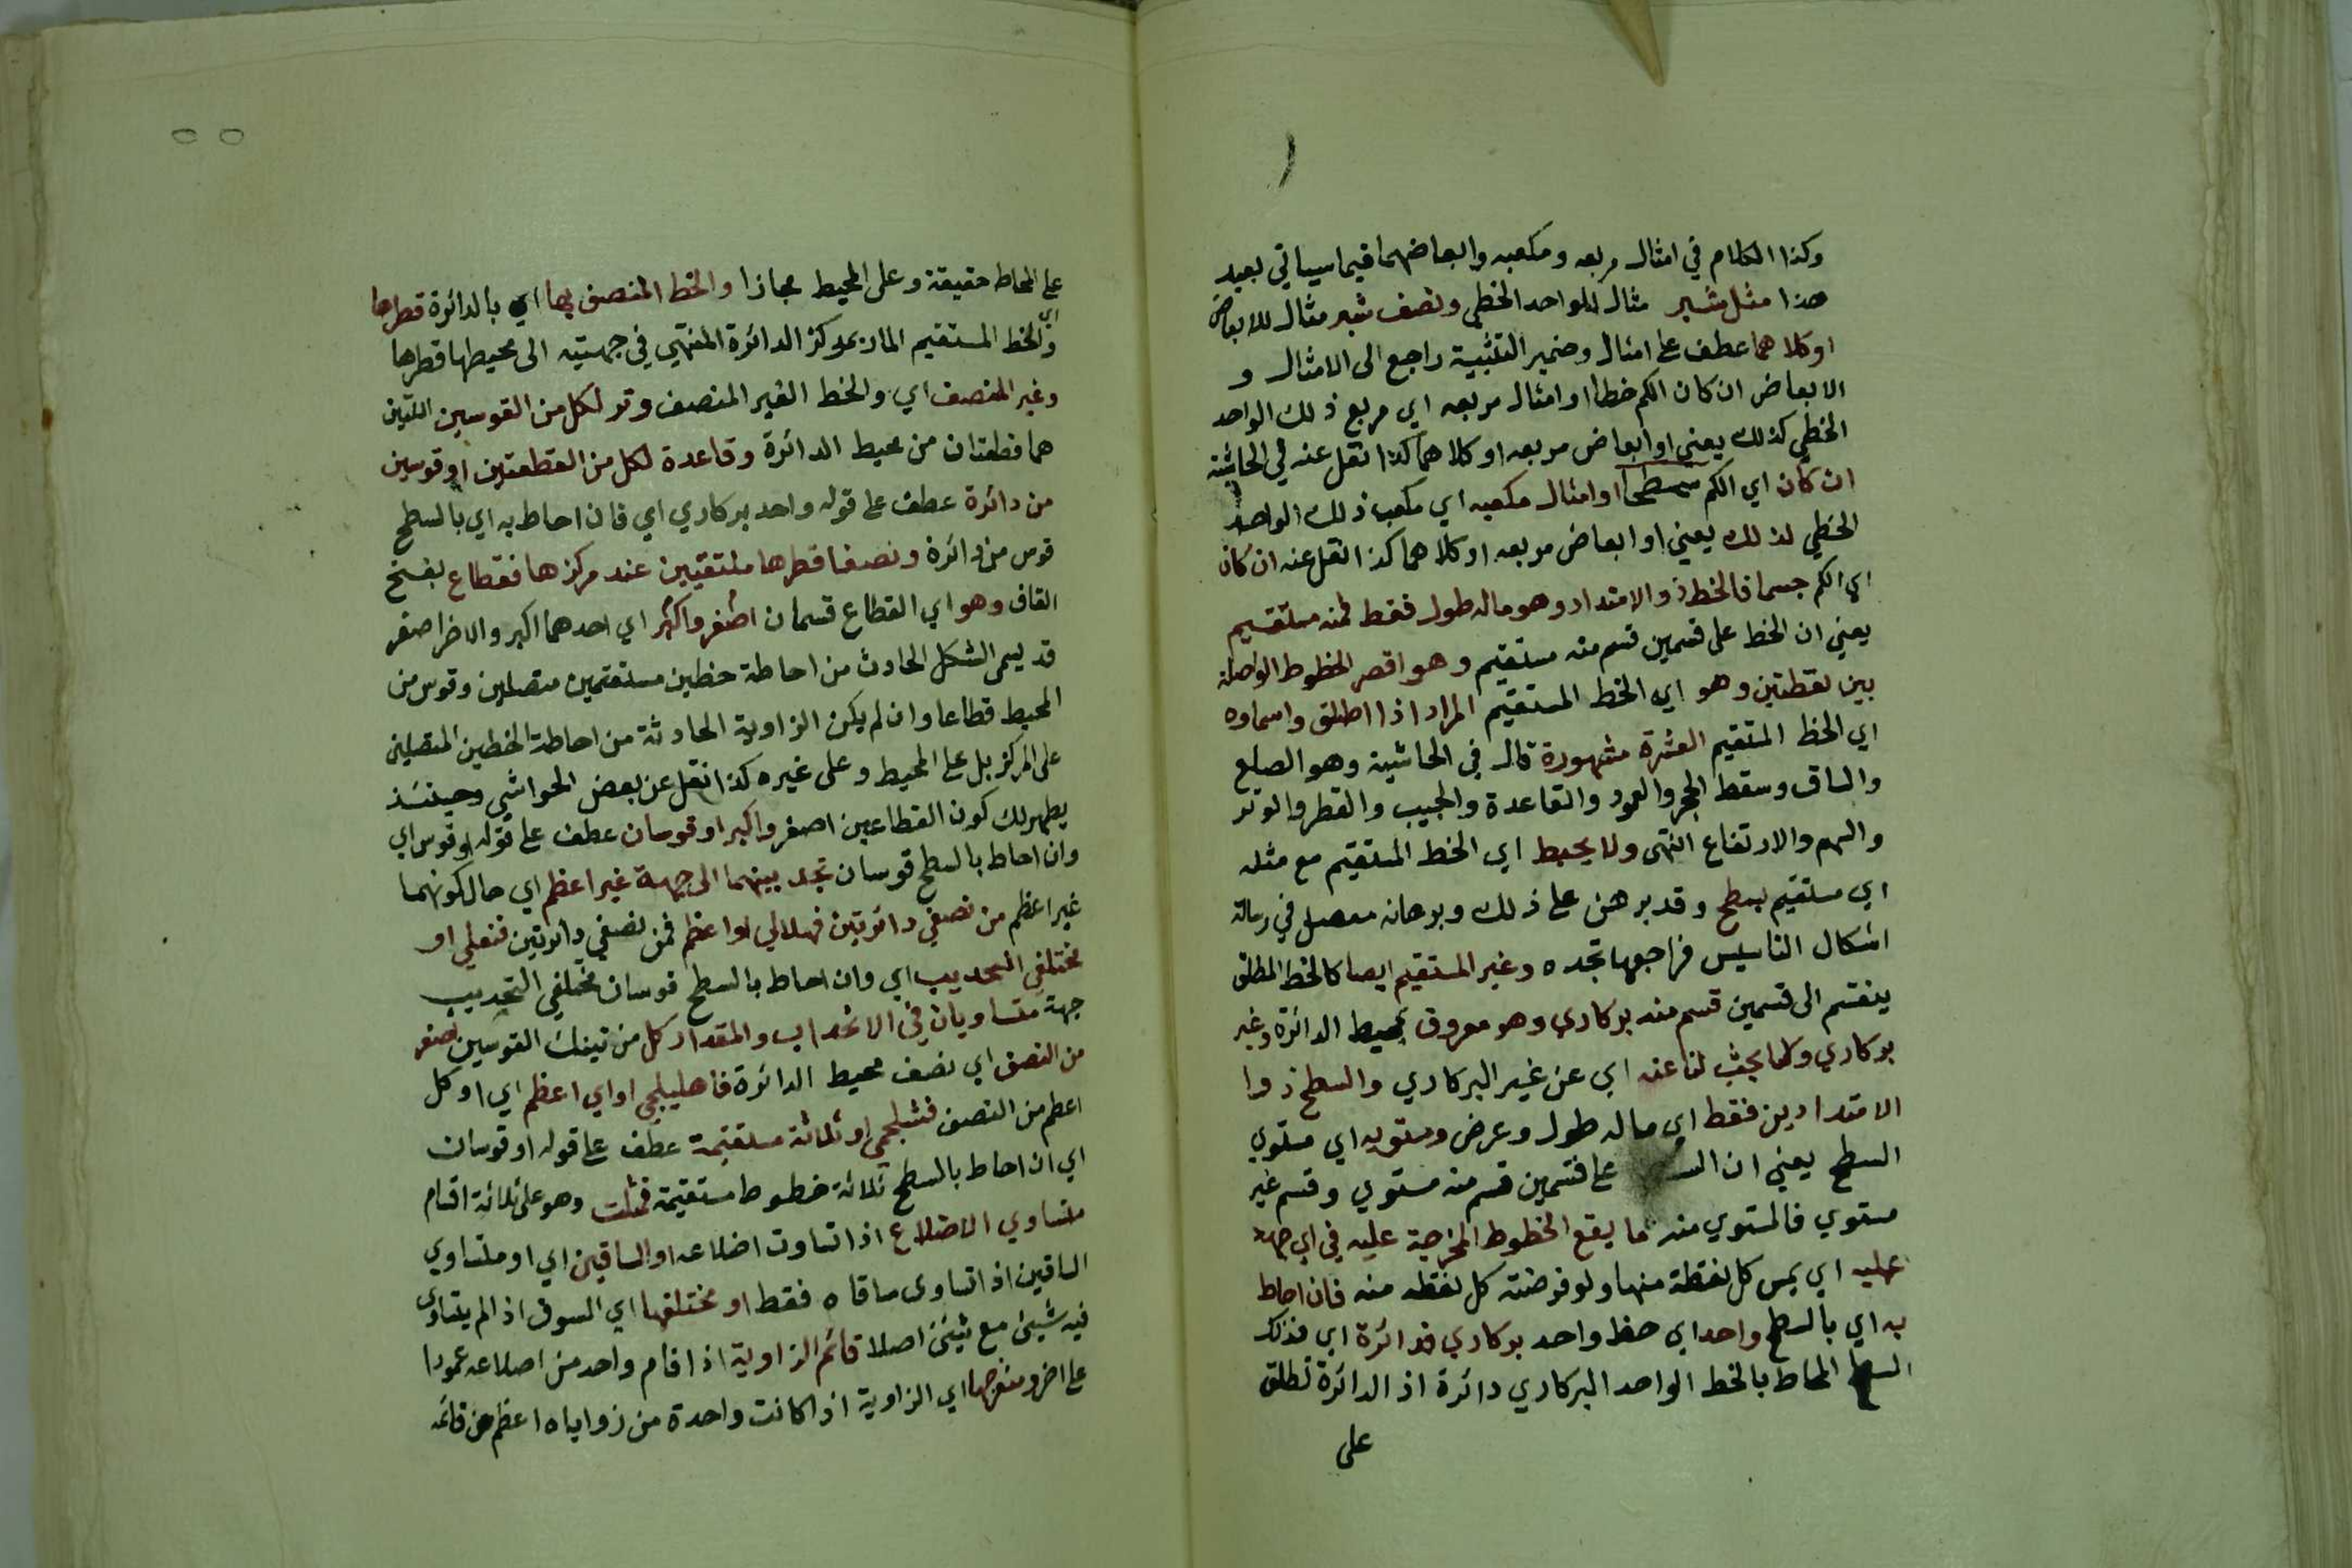 وكذا الكلام في امثال مربعه ومكعبه وابعاضهما فيما سياتي بعيد
هذا مثل شبر مثال للواحد الخطي ونصف شبر مثال للابعاض
اوكلاهما عطف على امثال وضمير التثنية راجع الى الامثال و
الابعاض ان كان الكم خطا او امثال مربعه اي مربع ذلك الواحد
الخطي كذلك يعني او ابعاض مربعه اوكلاهما كذا نقل عنه في الحاشية
ان كان اي الكم سطحا او امثال مكعبه اي مكعب ذلك الواحد
الخطي لذلك يعني او ابعاض مربعه اوكلاهما كذا نقل عنه ان كان
اي الكم جسما فالخط ذو الامتداد وهو ماله طول فقط فمنه مستقيم
يعني ان الخط على قسمين قسم منه مستقيم وهو اقصر الخطوط الواصلة
بين نقطتين وهو اي الخط المستقيم المراد اذا اطلق واسماوه
اي الخط المستقيم العشرة مشهورة قال في الحاشية وهو الضلع
والساق وسقط الحجر والعمود والقاعدة والجيب والقطر والوتر
والسهم والارتفاع انتهى ولا يحيط اي الخط المستقيم مع مثله
اي مستقيم بسطح وقد برهن على ذلك وبرهانه مفصل في رسالة
اشكال التاسيس فراجعها تجده وغير المستقيم ايضا كالخط المطلق
ينقسم الى قسمين قسم منه بركاري وهو معروف بمحيط الدائرة وغير
بركاري وكما بحث لنا عنه اي عن غير البركاري والسطح ذوا
الامتدادين فقط اي ماله طول وعرض ومستويه اي مستوي
السطح يعني ان الس على قسمين قسم منه مستوي وقسم غير
مستوي فالمستوي منه ما يقع الخطوط المخرجة عليه في اي جهة
عليه اي يمس كل نقطة منها ولو فرضته كل نقطه منه فان احاط
به اي بالسطح واحد اي خط واحد بركاري فدائرة اي فذلك
السطح المحاط بالخط الواحد البركاري دائرة اذ الدائرة تطلق
على
على المحاط حقيقة وعلى المحيط مجازا والخط المنصف بها اي بالدائرة قطرها
اي والخط المستقيم المار بمركز الدائرة المنتهي في جهتيه الى محيطها قطرها
وغير المنصف اي والخط الغير المنصف وتر لكل من القوسين اللتين
هما قطعتان من محيط الدائرة وقاعدة لكل من القطعتين او قوسين
من دائرة عطف على قوله واحد بركاري اي فان احاط به اي بالسطح
قوس من دائرة ونصفا قطرها ملتقيين عند مركزها فقطاع بفتح
القاف وهو اي القطاع قسمان اصغر واكبر اي احدهما اكبر والاخر اصغر
قد يسمى الشكل الحادث من احاطة خطين مستقيمين متصلين وقوس من
المحيط قطاعا وان لم يكن الزاوية الحادثة من احاطة الخطين المتصلين
على المركز بل على المحيط وعلى غيره كذا نقل عن بعض الحواشي وحينئذ
يظهر لك كون القطاعين اصغر واكبر او قوسان عطف على قوله او قوس اي
وان احاط بالسطح قوسان تحد بينهما الى جهة غير اعظم اي حال كونهما
غير اعظم من نصفي دائرتين فهلالي او اعظم من نصفي دائرتين فنعلي او
مختلفي التحديب اي وان احاط بالسطح قوسان مختلفي التحديب
جهة متساويان في الانحداب والمقدار كل من تينك القوسين اصغر
من النصف اي نصف محيط الدائرة فاهليلجي او اي اعظم اي او كل
اعظم من النصف فشلجمي او ثلاثة مستقيمة عطف على قوله او قوسان
اي ان احاط بالسطح ثلاثة خطوط مستقيمة فمثلث وهو على ثلاثة اقسام
متساوي الاضلاع اذا تساوت اضلاعه او الساقين اي او متساوي
الساقين اذا تساوى ساقاه فقط او مختلفها اي السوق اذا لم يتساوى
فيه شيئ مع شيئ اصلا قائم الزاوية اذا قام واحد من اضلاعه عمودا
على اخر ومنفرجها اي الزاوية اذا كانت واحدة من زواياه اعظم من قائمة